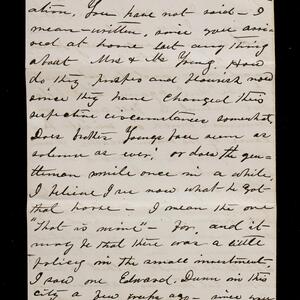 ation. You have not said – I
mean – written, since you arri-
ved at home last any thing
about Mrs & Mr Young. How
do they prosper and flourish now
since they have changed their
respective circumstances somewhat.
Does brother Youngs face seem as
solemn as ever? or does the gen-
tleman smile once in a while.
I believe I see now what he got
that horse – I mean the one
"That is mine" – for, and it
may be that there was a little
policy in the small investment.
I saw one Edward Dunn in this
city a few weeks ago – since your